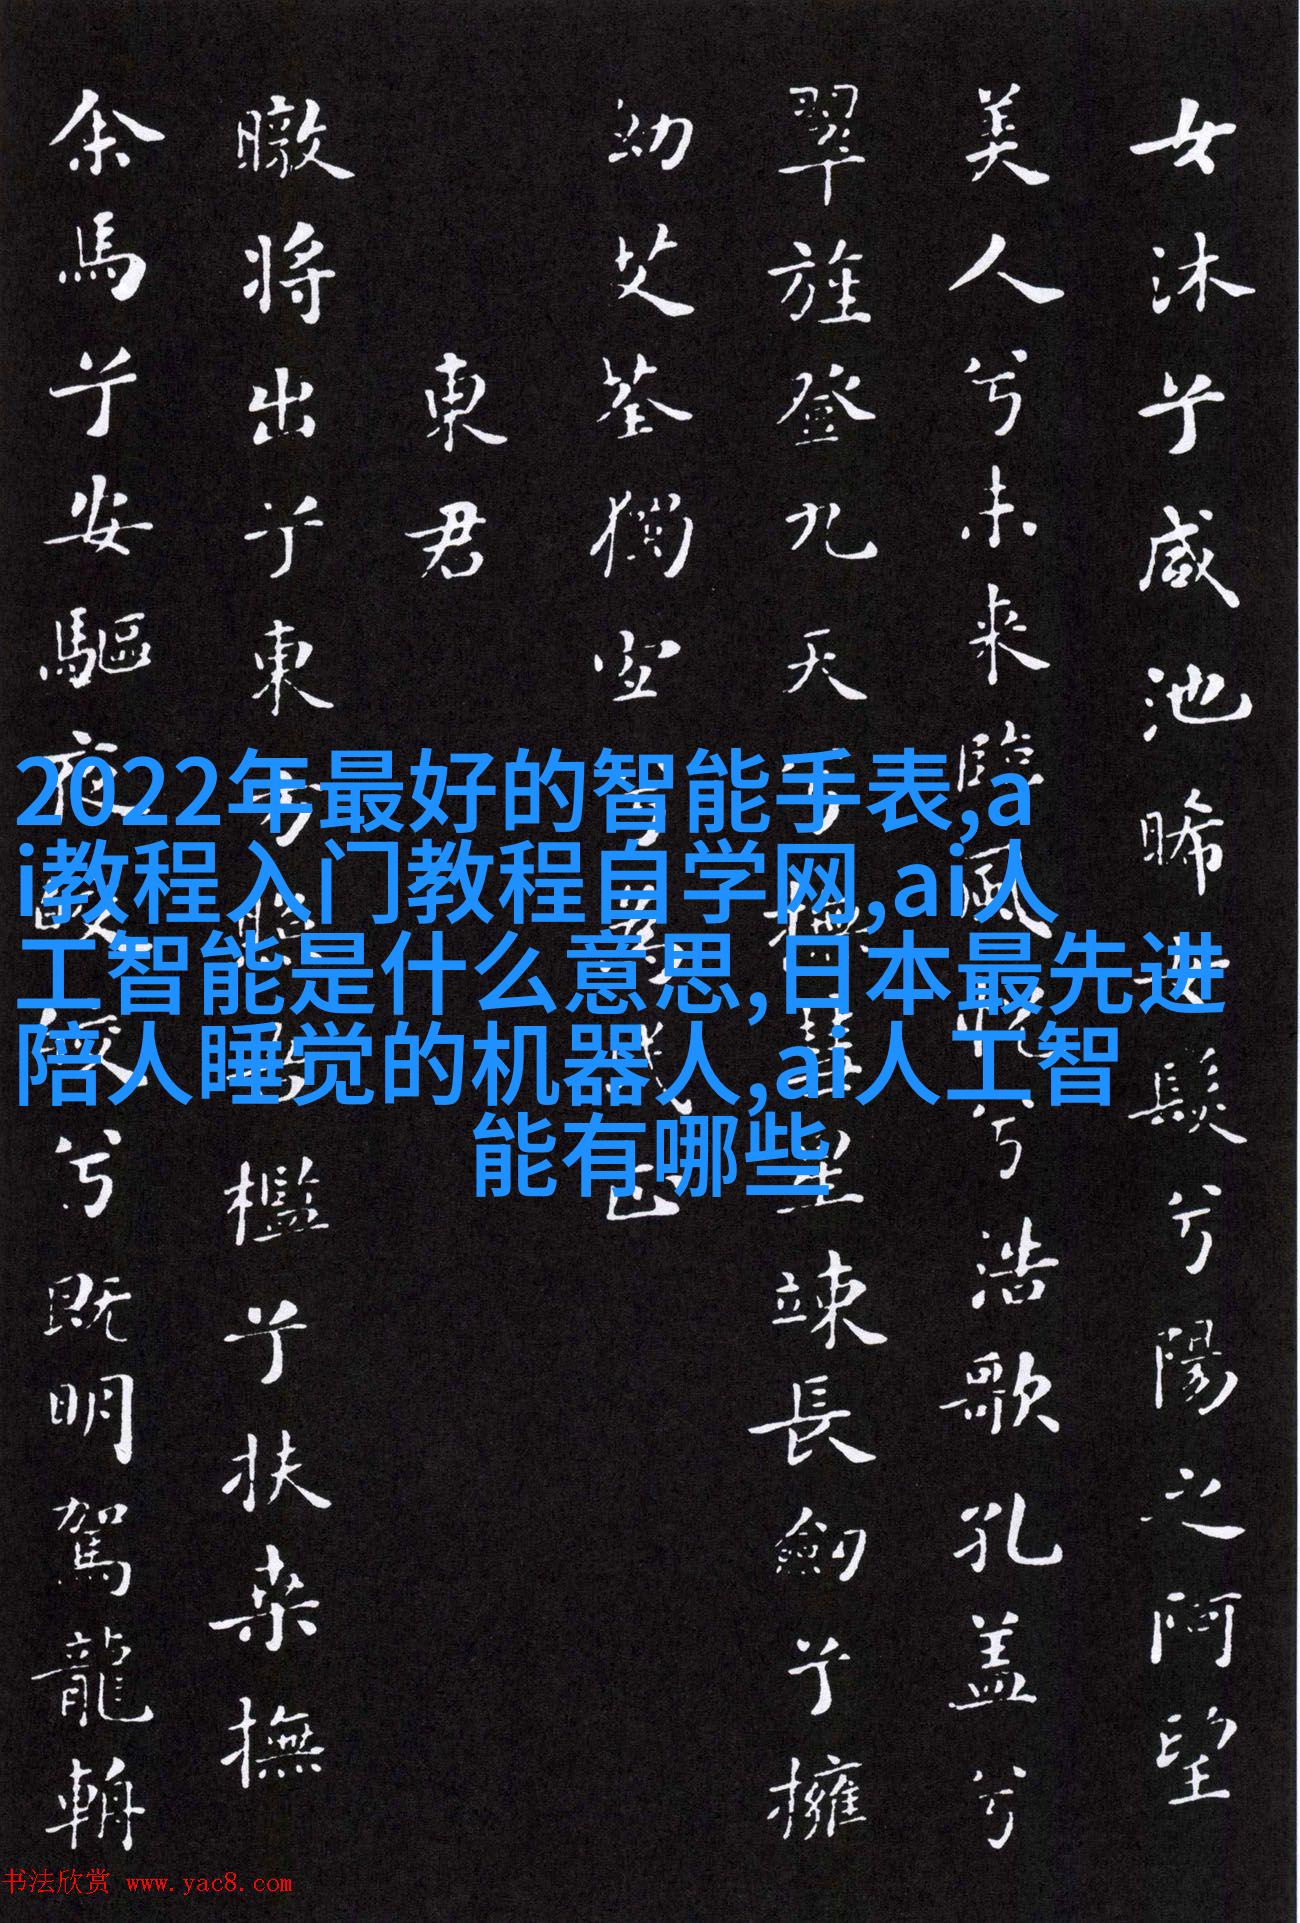 女沐兮咸池晞女髮兮陽之阿望
美人兮未來臨風怳兮浩歌孔盖兮
翠旌登九天兮撫彗星竦長劒兮擁
幼艾荃獨宜兮爲民正
東君
暾將出兮東方照吾檻兮扶桑撫
余馬兮安驅夜皎皎兮既明駕龍輈
2022年最好的智能手表,a
i教程入门教程自学网,ai人
工智能是什么意思,日本最先进
陪人睡觉的机器人,ai人工智
能有哪些
书法欣赏 www.yac8.com